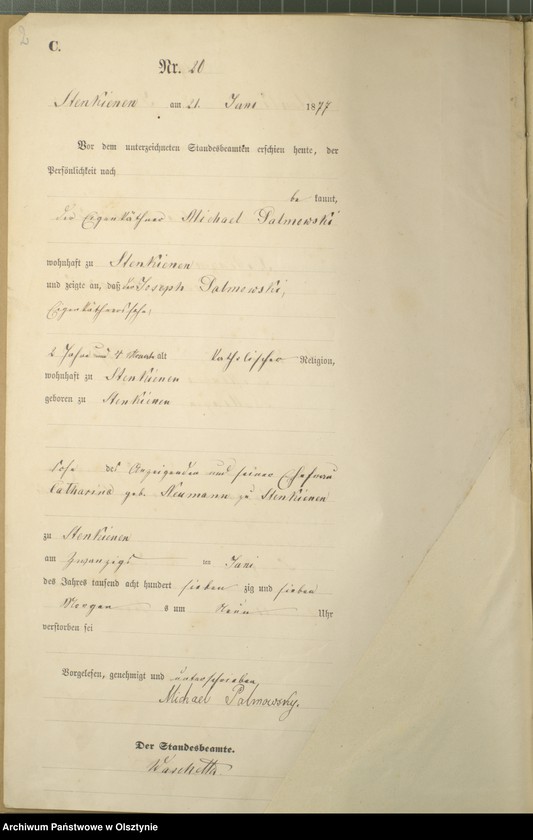 2
C.
Nr. 20
Stenkienen am 21. Juni 1877
Vor dem unterzeichneten Standesbeamten erschien heute, der
Persönlichkeit nach
be kannt,
der Eigenkäthner Michael Palmowski
wohnhaft zu Stenkienen
und zeigte an, daß der Joseph Palmowski,
Eigenkäthnerssohn,
2 Jahre und 4 Monate alt katholischer Religion,
wohnhaft zu Stenkienen
geboren zu Stenkienen
Sohn des Anzeigenden und seiner Ehefrau
Catharina geb. Neumann zu Stenkienen
zu Stenkienen
am zwanzigs ten Juni
des Jahres tausend acht hundert sieben zig und sieben
Morgen s um Neun Uhr
verstorben sei
Vorgelesen, genehmigt und unterschrieben
Michael Palmowsky.
Der Standesbeamte.
Archiwum Państwowe w Olsztynie